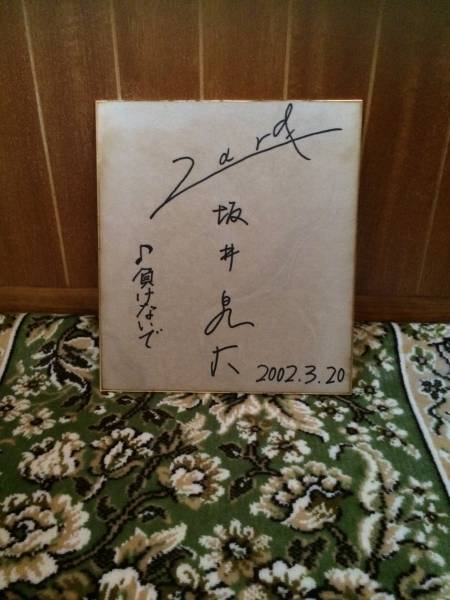 Zard
坂井泉水
♪負けないで
2002.3.20